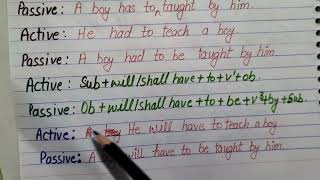 Passive: A boy has to taught by him.
Active: He had to teach a boy.
Passive: A boy had to be taught by him.
Active: Sub+will/shall have+to+v¹+ob.
Passive: Ob+will/shall have+to+be+v³+by+Sub.
Active: He will have to teach a boy
Passive: A will have to be taught by him.